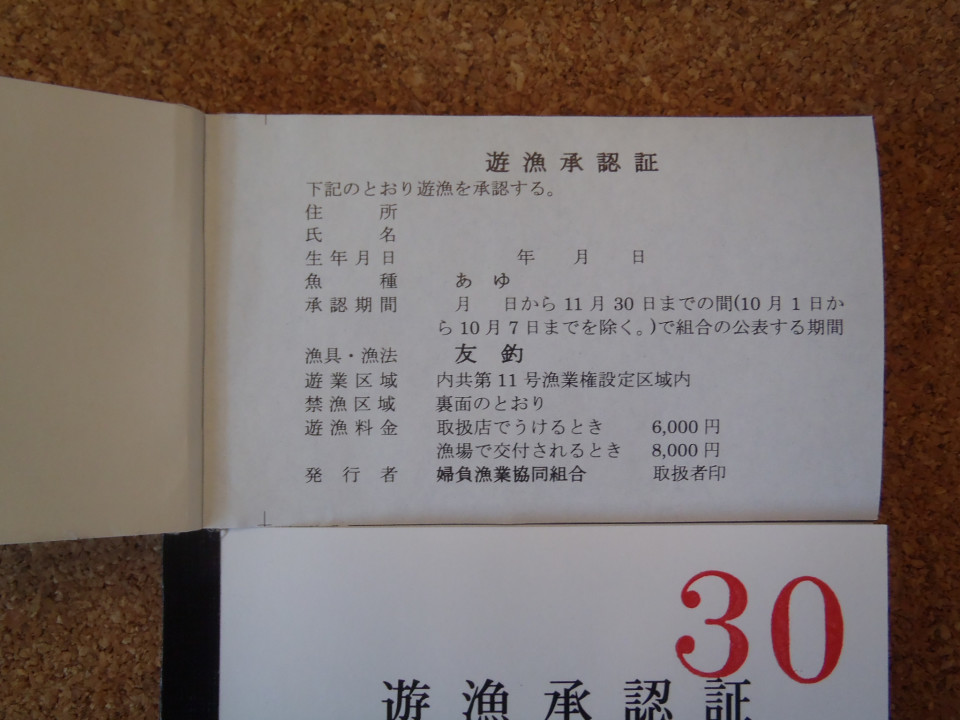 遊漁承認証
下記のとおり遊漁を承認する。
住所
氏名
生年月日 年 月 日
魚種 あゆ
承認期間 月 日から11月30日までの間(10月1日か
ら10月7日までを除く。)で組合の公表する期間
漁具・漁法 友釣
遊業区域 内共第11号漁業権設定区域内
禁漁区域 裏面のとおり
遊漁料金 取扱店でうけるとき 6,000円
漁場で交付されるとき 8,000円
発行者 婦負漁業協同組合 取扱者印
30
遊漁承認証